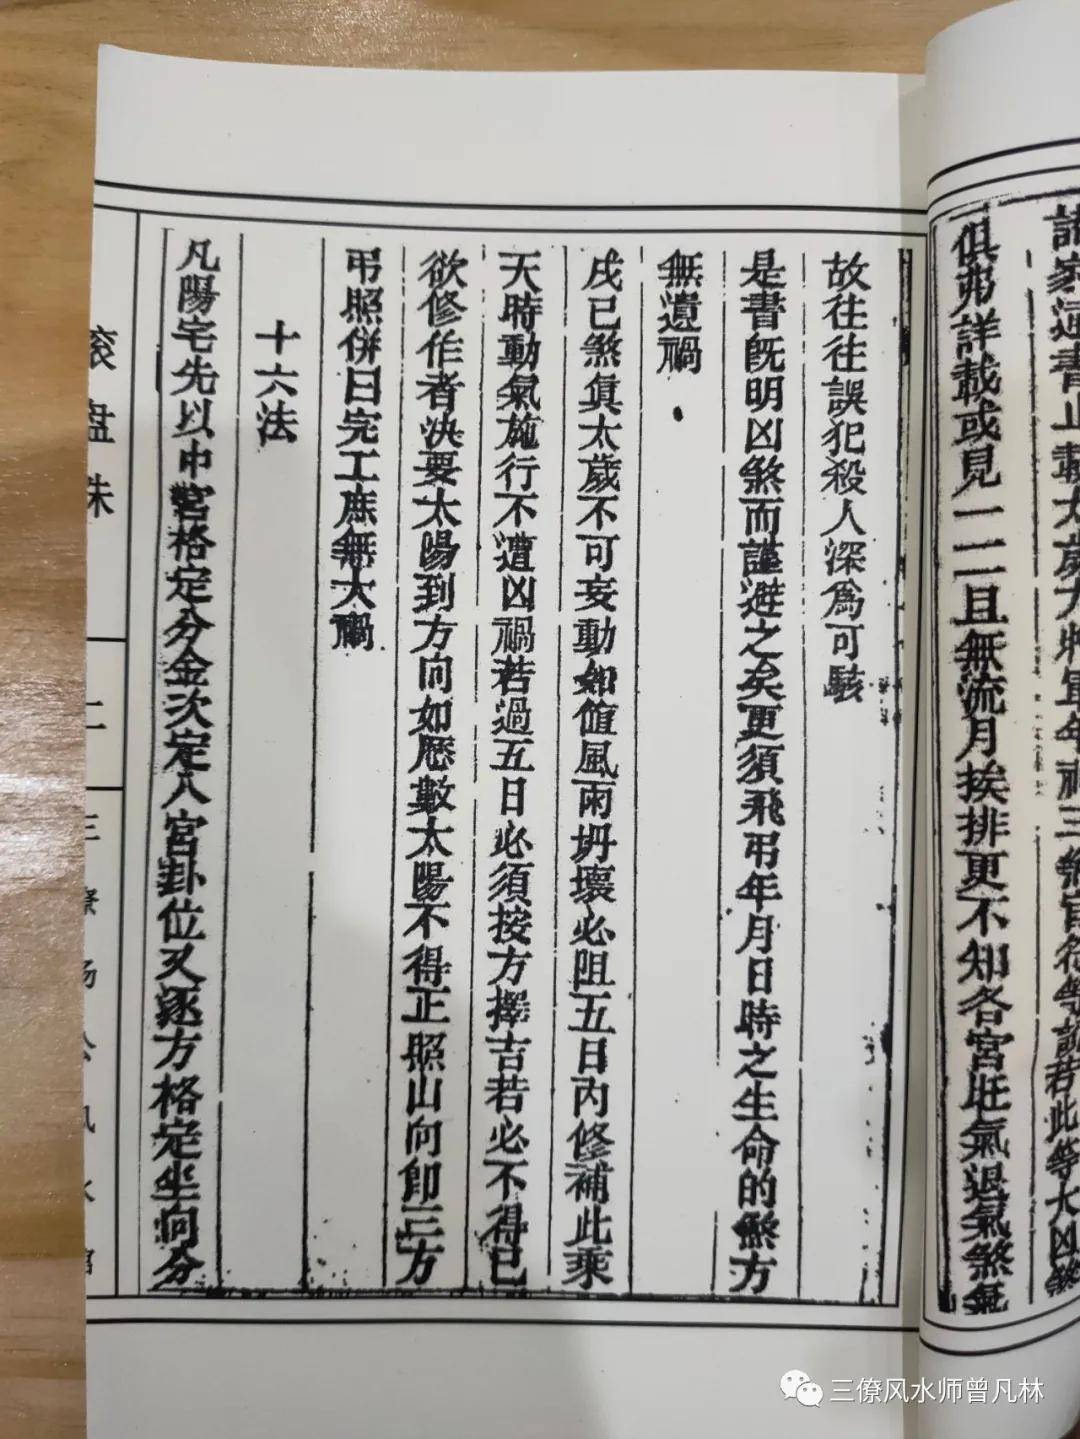 諸家通書止載太歲大將軍年禁三煞官符等說若此等大凶煞
俱弗詳載或見一二且無流月挨排更不知各宮旺氣退氣煞氣
故往往誤犯殺人深爲可駭
是書既明凶煞而謹避之矣更須飛弔年月日時之生命的煞方
無遺禍
戌已煞眞太歲不可妄動如值風雨坍壞必阻五日內修補此乘
天時動氣施行不遭凶禍若過五日必須按方擇吉若必不得已
欲修作者決要太陽到方向如歷數太陽不得正照山向卽三方
弔照併日完工庶無大禍
十六法
凡陽宅先以中宮格定分金次定八宮卦位又逐方格定坐向分
滾盤珠
二
三僚杨公风水馆
三僚风水师曾凡林